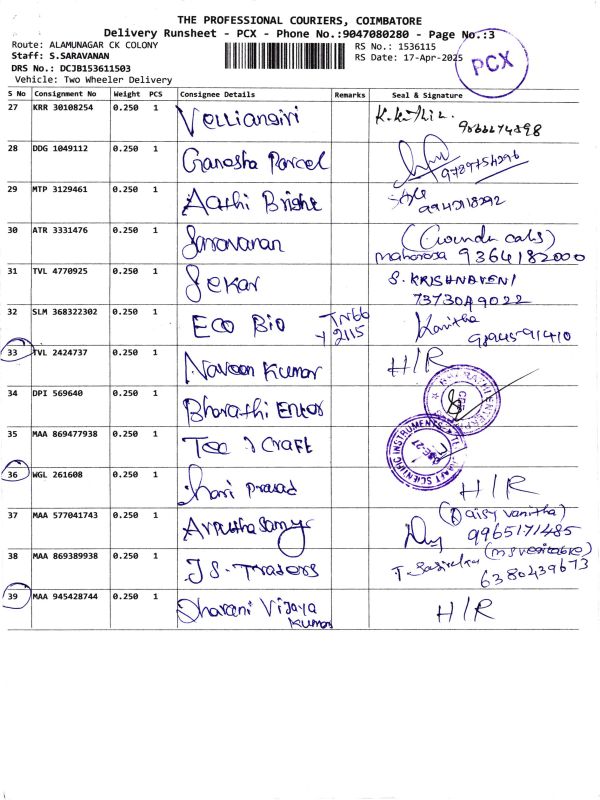 THE PROFESSIONAL COURIERS, COIMBATORE
Delivery Runsheet - PCX - Phone No.:9047080280 - Page No.:3
Route: ALAMUNAGAR CK COLONY
Staff: S.SARAVANAN
DRS No.: DCJB153611503
Vehicle: Two Wheeler Delivery
RS No.: 1536115
RS Date: 17-Apr-2025
PCX
S No Consignment No Weight PCS Consignee Details Remarks Seal & Signature
27 KRR 30108254 0.250 1 Velliangiri
28 DDG 1049112 0.250 1 Ganesha Parcel
29 MTP 3129461 0.250 1 Aathi
30 ATR 3331476 0.250 1 Saravanan 9364182000
31 TVL 4770925 0.250 1 Sekar S. KRISHNAVENI
7373049022
32 SLM 368322302 0.250 1 ECO BIO TN66 2115 Kavitha
33 TVL 2424737 0.250 1 Naveen Kumar H/R
34 DPI 569640 0.250 1 Bharathi Enter
35 MAA 869477938 0.250 1 Tee & Craft
36 WGL 261608 0.250 1 Hari Prasad H/R
37 MAA 577041743 0.250 1 (Daisy Vanitha)
9965171485
38 MAA 869389938 0.250 1 JS. Traders
6380439673
39 MAA 945428744 0.250 1 Dharani Vijaya Kumar H/R